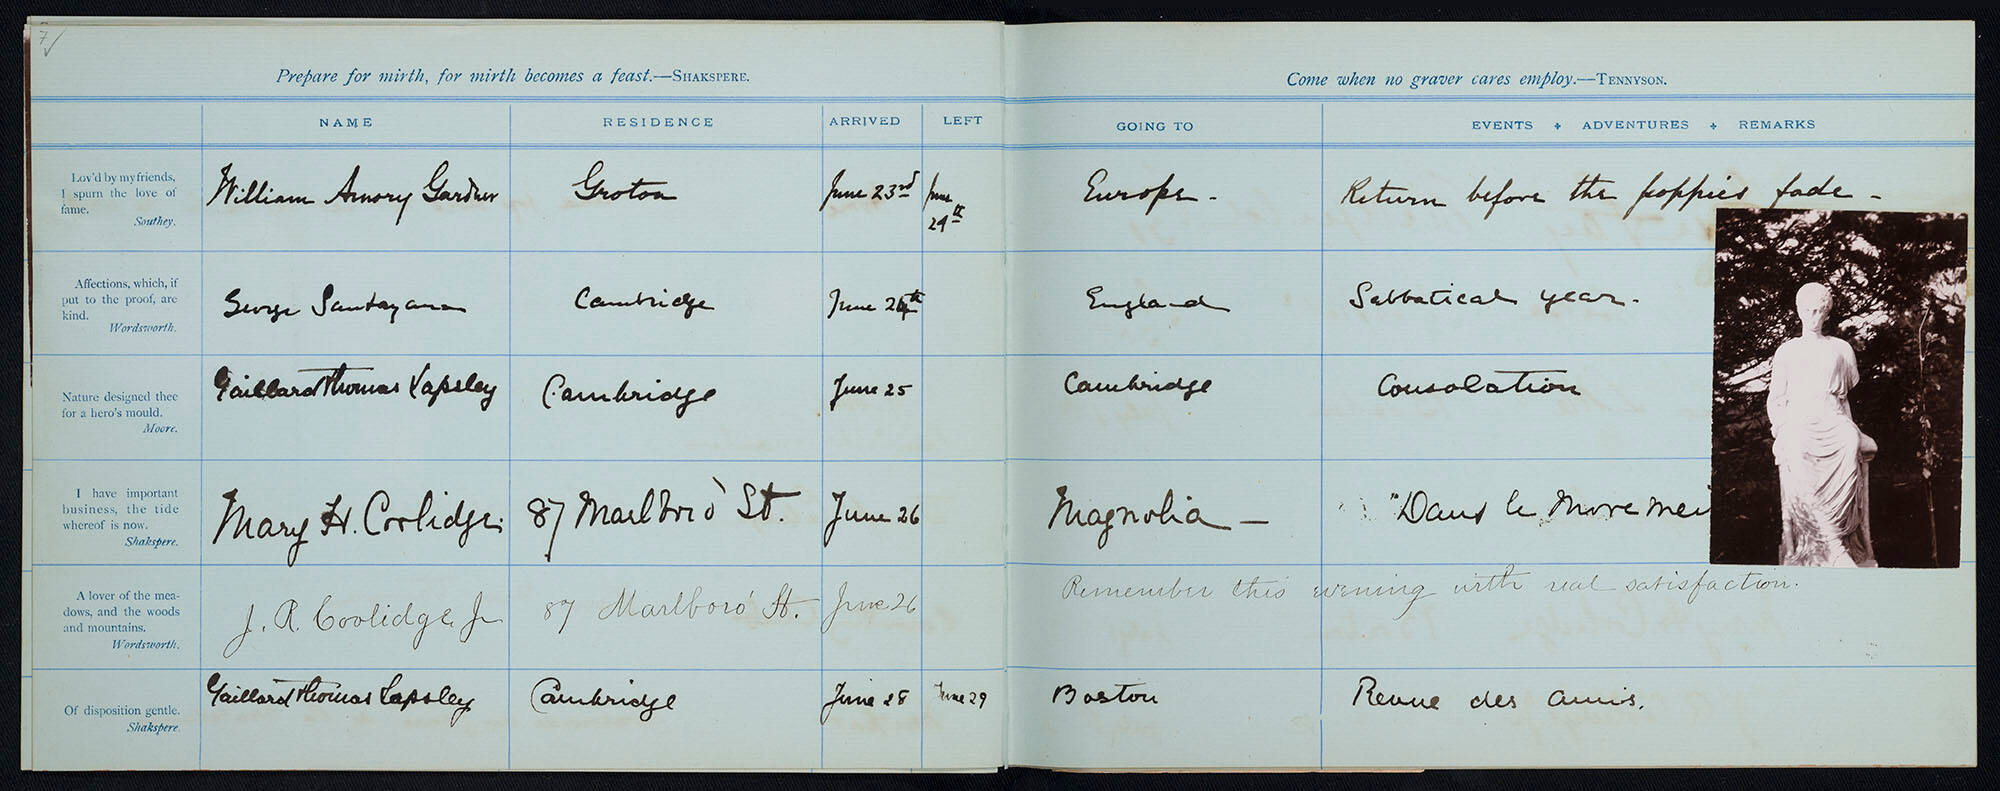 7
Prepare for mirth, for mirth becomes a feast.—SHAKSPERE.
Come when no graver cares employ.—TENNYSON.
NAME RESIDENCE ARRIVED LEFT GOING TO EVENTS ✣ ADVENTURES ✣ REMARKS
Lov'd by my friends,
I spurn the love of
fame.
Southey.
William Amory Gardner Groton June 23rd June
29th
Europe - Return before the poppies fade -
Affections, which, if
put to the proof, are
kind.
Wordsworth.
George Santayana Cambridge June 24th England Sabbatical year.
Nature designed thee
for a hero's mould.
Moore.
Gaillard Thomas Lapsley Cambridge June 25 Cambridge Consolation
I have important
business, the tide
whereof is now.
Shakspere.
Mary H. Coolidge. 87 Marlboro' St. June 26 Magnolia — "Dans le
A lover of the mea-
dows, and the woods
and mountains.
Wordsworth.
J. R. Coolidge Jr 87 Marlboro' St. June 26 Remember this evening with real satisfaction.
Of disposition gentle.
Shakspere.
Gaillard Thomas Lapsley Cambridge June 28 June 29 Boston Revue des amis.